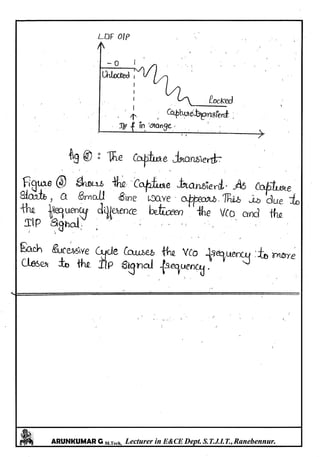 LDF O/P
- 0
Unlocked
Locked
Capture transient
I/P f in range.
fig : The Capture transient
Figure Shows the Capture transient. As Capture
Starts, a Small Sine wave appears. This is due to
the frequency difference between the VCO and the
I/P Signal.
Each Sucessive Cycle Causes the VCO frequency to more
Closer to the I/P Signal frequency.
ARUNKUMAR G M.Tech, Lecturer in E&CE Dept. S.T.J.I.T., Ranebennur.